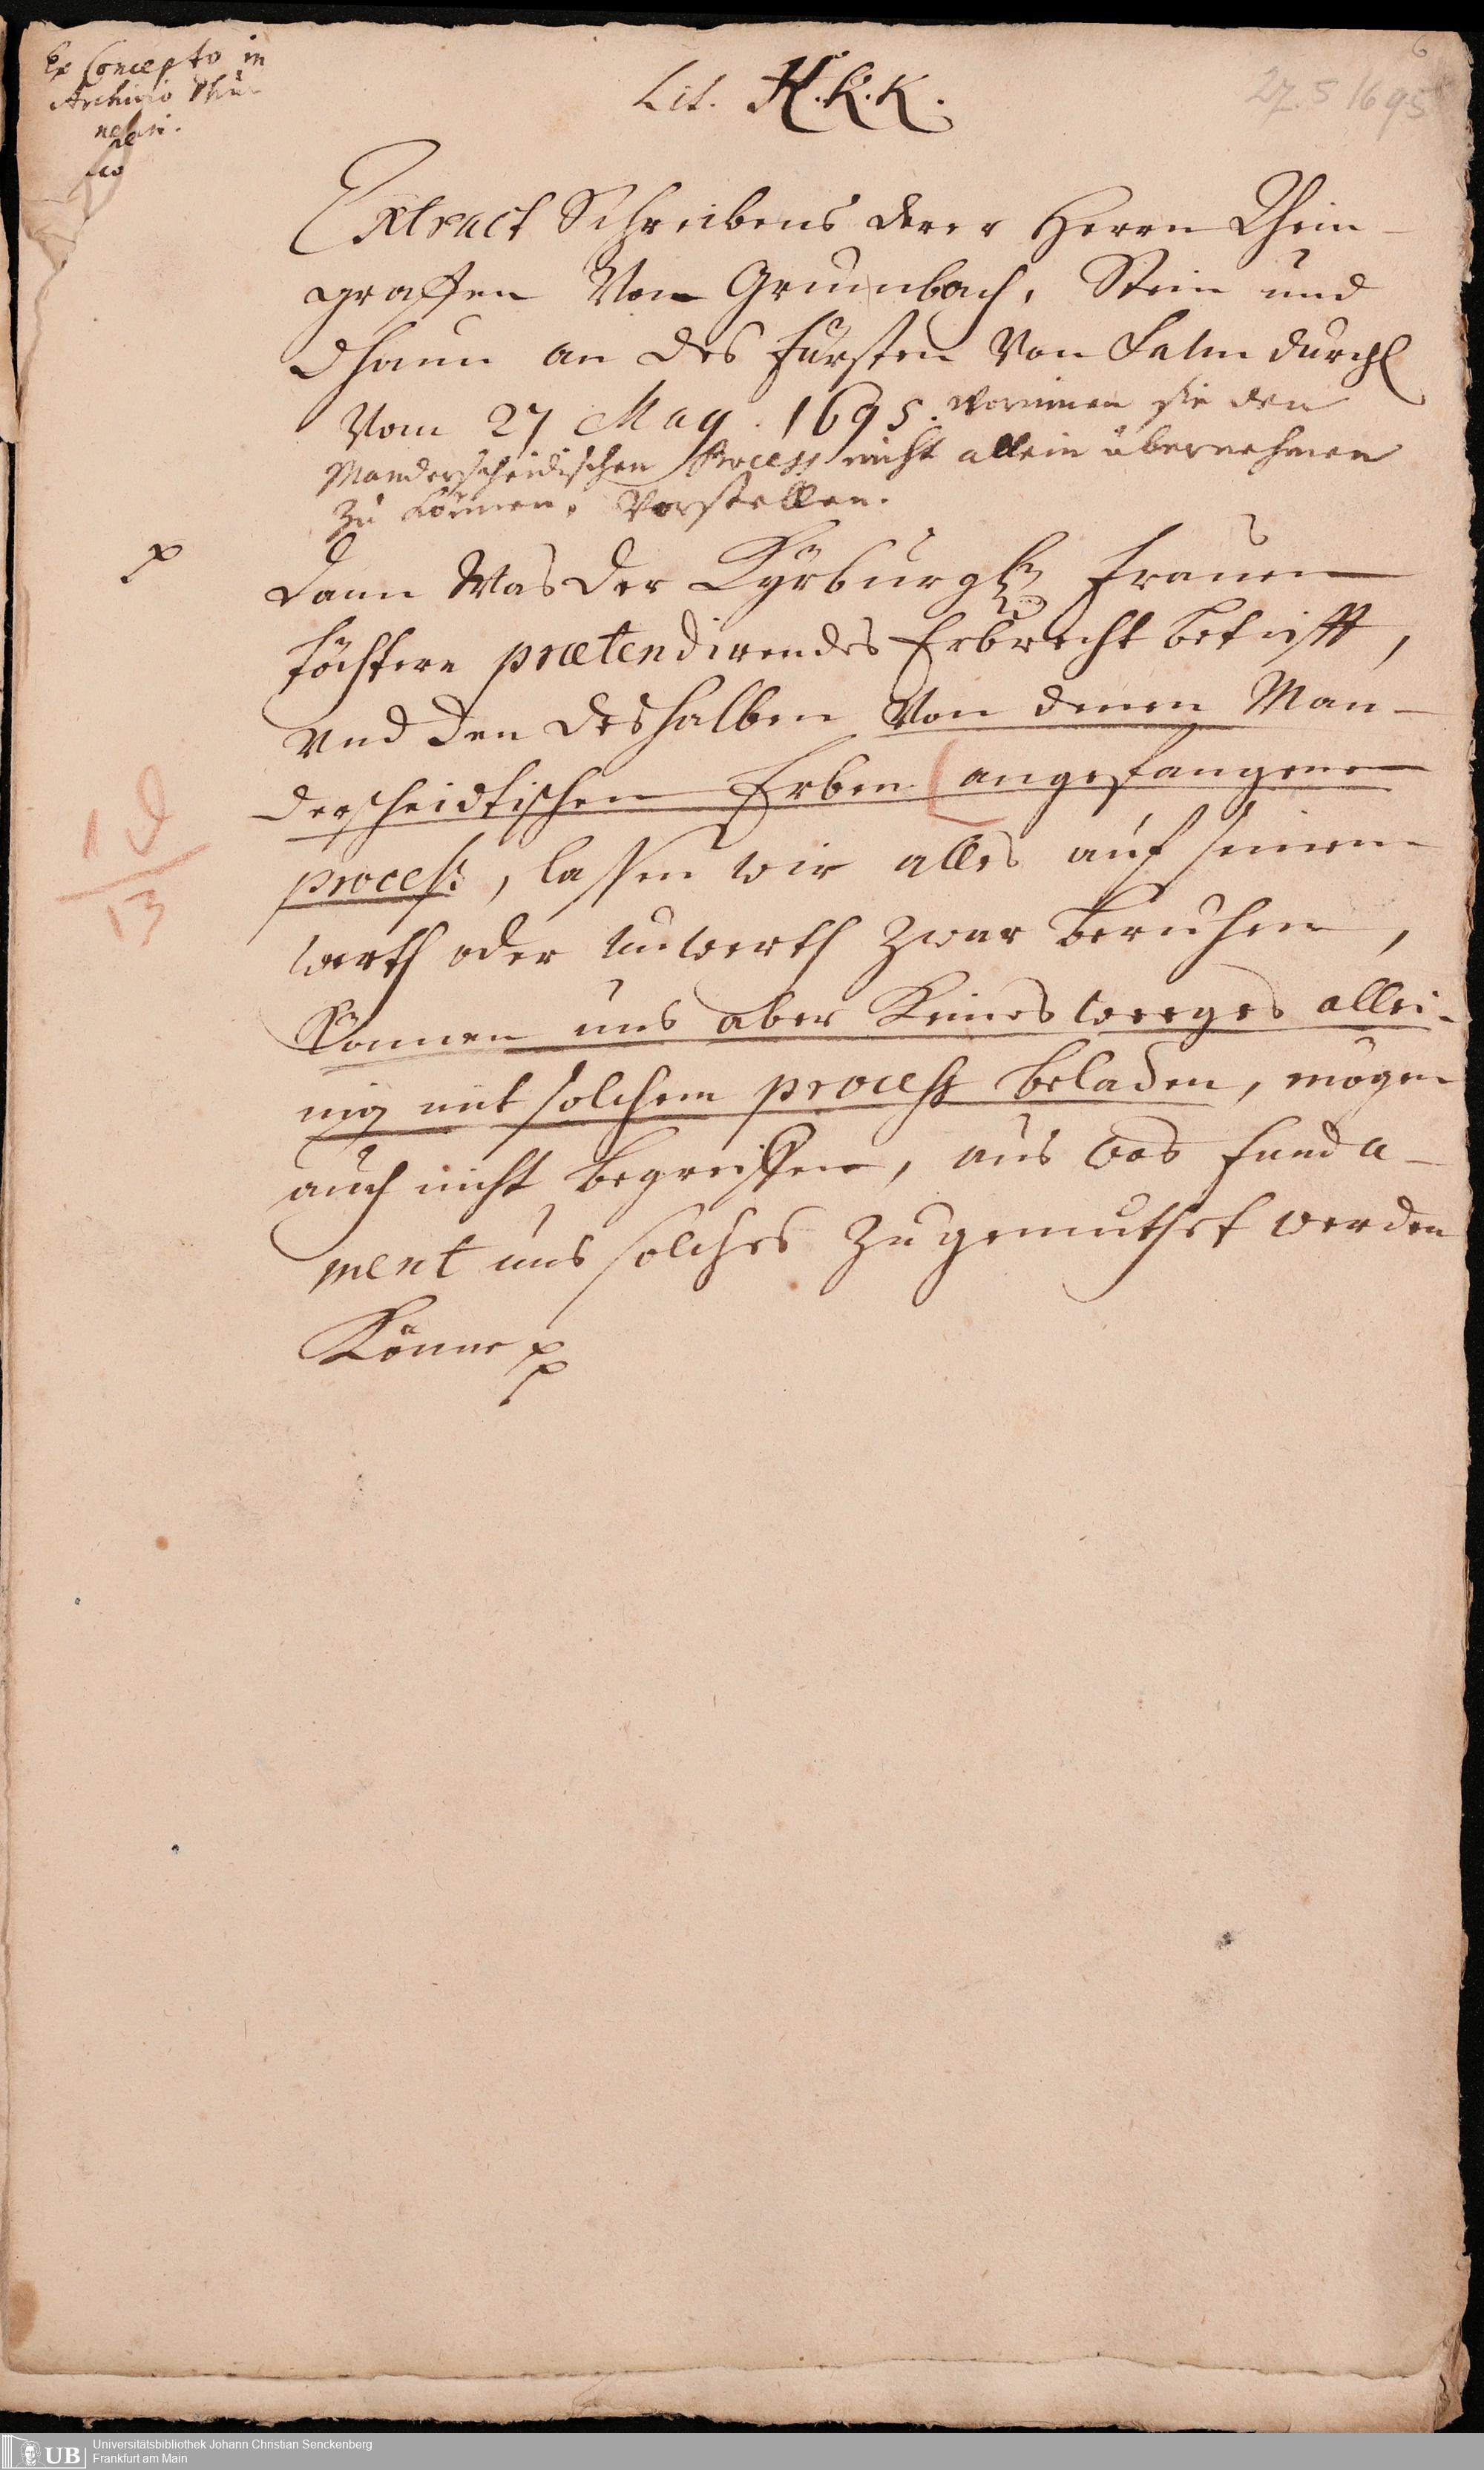 Ex Concepto in
Archivio Dhu-
nensi.
6
27.5 1695
Lit. H.K.K.
Extract Schreibens derer Herrn Rhein-
graffen Von Grumbach, Stein und
Dhaun an des Fürsten Von Salm Durchl
Vom 27 May. 1695. worinnen sie den
Manderscheidischen Process nicht allein übernehmen
zu können, Vorstellen.
p
Dann Was der Kyrburg. Frauen
töchtern prætendirendes Erbrecht betrifft,
Vnd den deshalben Von denen Man-
derscheidtischen Erben angefangenen
process, lassen wir alles auf seinem
werth oder unwerth zwar beruhen,
Können uns aber Keines weeges allei-
nig mit solchem process beladen, mögen
auch nicht begreiffen, aus was funda-
ment uns solches zugemuthet werden
Könne pp
1
13
UB Universitätsbibliothek Johann Christian Senckenberg
Frankfurt am Main